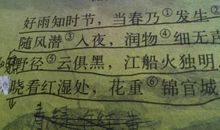 好雨知时节，当春乃①发生②
随风潜③入夜，润物④细无声
野径⑤云俱黑，江船火独明
晓看红湿处，花重⑥锦官城